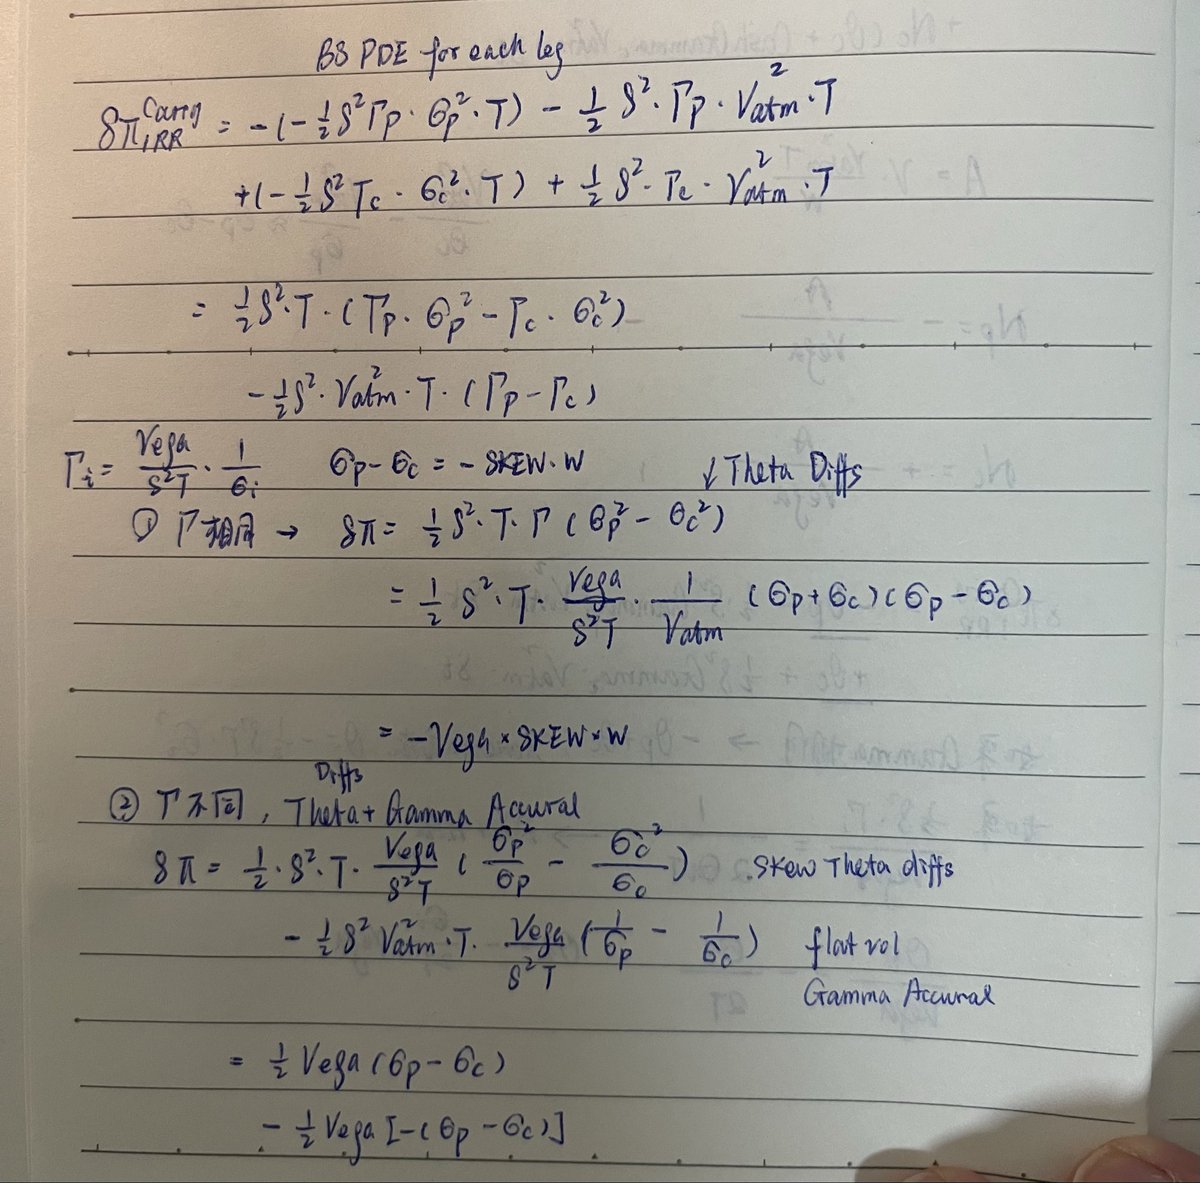 BS PDE for each leg
δπ_{1RR}^{Carry} = -(-½S²Γp·σp²·T) - ½ S²·Γp·Vatm²·T
+(-½S²Γc·σc²·T) + ½ S²·Γc·Vatm²·T
= ½S²·T·(Γp·σp² - Γc·σc²)
-½S²·Vatm²·T·(Γp-Γc)
Γi = Vega/S²T · 1/σi σp-σc = -SKEW·W ↓Theta Diffs
① Γ相同 → δπ = ½S²·T·Γ(σp²-σc²)
= ½ S²·T·Vega/S²T · 1/Vatm (σp+σc)(σp-σc)
= -Vega×SKEW×W
Diffs
② Γ不同, Theta+ Gamma Accural
δπ = ½·S²·T·Vega/S²T (σp²/σp - σc²/σc) .Skew Theta diffs
- ½S² Vatm²·T·Vega/S²T (1/σp - 1/σc) flat vol
Gamma Accural
= ½ Vega(σp-σc)
- ½ Vega[-(σp-σc)]